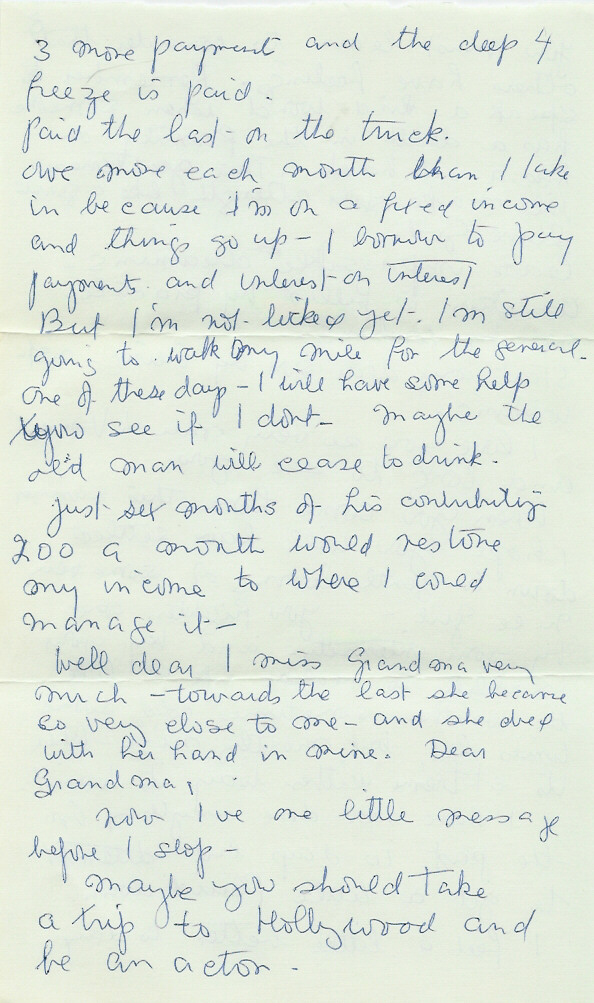 3 more payment and the deep 4
freeze is paid.
Paid the last on the truck.
owe more each month than I take
in because I'm on a fixed income
and things go up - I borrow to pay
payments. and interest on interest
But I'm not licked yet. I'm still
going to walk my mile for the general.
one of these days - I will have some help
you see if I dont - maybe the
old man will cease to drink.
Just six months of his contributing
200 a month would restore
my income to where I could
manage it -
Well dear I miss Grandma very
much - towards the last she became
so very close to me - and she died
with her hand in mine. Dear
Grandma,
now I've one little message
before I stop -
maybe you should take
a trip to Hollywood and
be an actor -